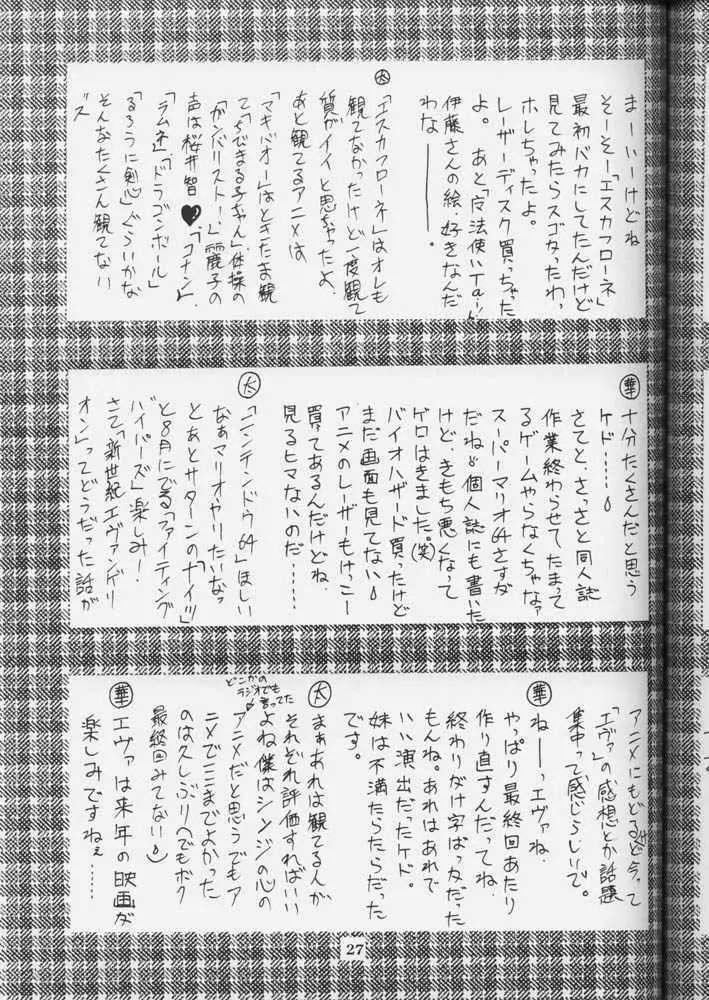 まーいーけどね
そーそー「エスカフローネ」
最初バカにしてたんだけど
見てみたらスゴかったわっ
ホレちゃったよ。
レーザーディスク買っちゃった
よ。あと「魔法使いTai!」
伊藤さんの絵、好きなんだ
わな――。
大
「エスカフローネ」はオレも
観てなかったけど一度観て
質がイイと思っちゃったよ、
あと観てるアニメは
「マキバオー」はときたま観
て「ちびまる子ちゃん」、体操の
「ガンバリスト!」麗子の
声は桜井智♥「コナン」、
「ラムネ」「ドラゴンボール」
「るろうに剣心」ぐらいかな
そんなたくさん観てない
ズ
華
十分たくさんだと思う
ケド……
さてと、さっさと同人誌
作業終わらせてたまって
るゲームやらなくちゃなっ
スーパーマリオ64さすが
だね。個人誌にも書いた
けど、きもち悪くなって
ゲロはきました。(笑)
バイオハザード買ったけど
まだ画面も見てない
アニメのレーザーもけっこー
買ってあるんだけどね、
見るヒマないのだ……
大
「ニンテンドウ64」ほしい
なぁマリオやりたいなっ
とあとサターンの「ナイツ」
と8月にでる「ファイティング
バイパーズ」楽しみ!
さて「新世紀エヴァンゲリ
オン」ってどうだった話が
アニメにもどるけど今って
「エヴァ」の感想とか話題
集中って感じらしいで。
華
ねーっエヴァね、
やっぱり最終回あたり
作り直すんだってね、
終わりがけ字ばっかだった
もんね。あれはあれで
いい演出だったケド。
妹は不満たらたらだった
です。
大
まぁあれは観てる人が
それぞれ評価すればいい
よね僕はシンジの心の
どこかの
ラジオでも
言ってた
アニメだと思うでもア
ニメでここまでよかった
のは久しぶりへでもボク
最終回みてない
華
エヴァは来年の映画が
楽しみですねぇ……
27